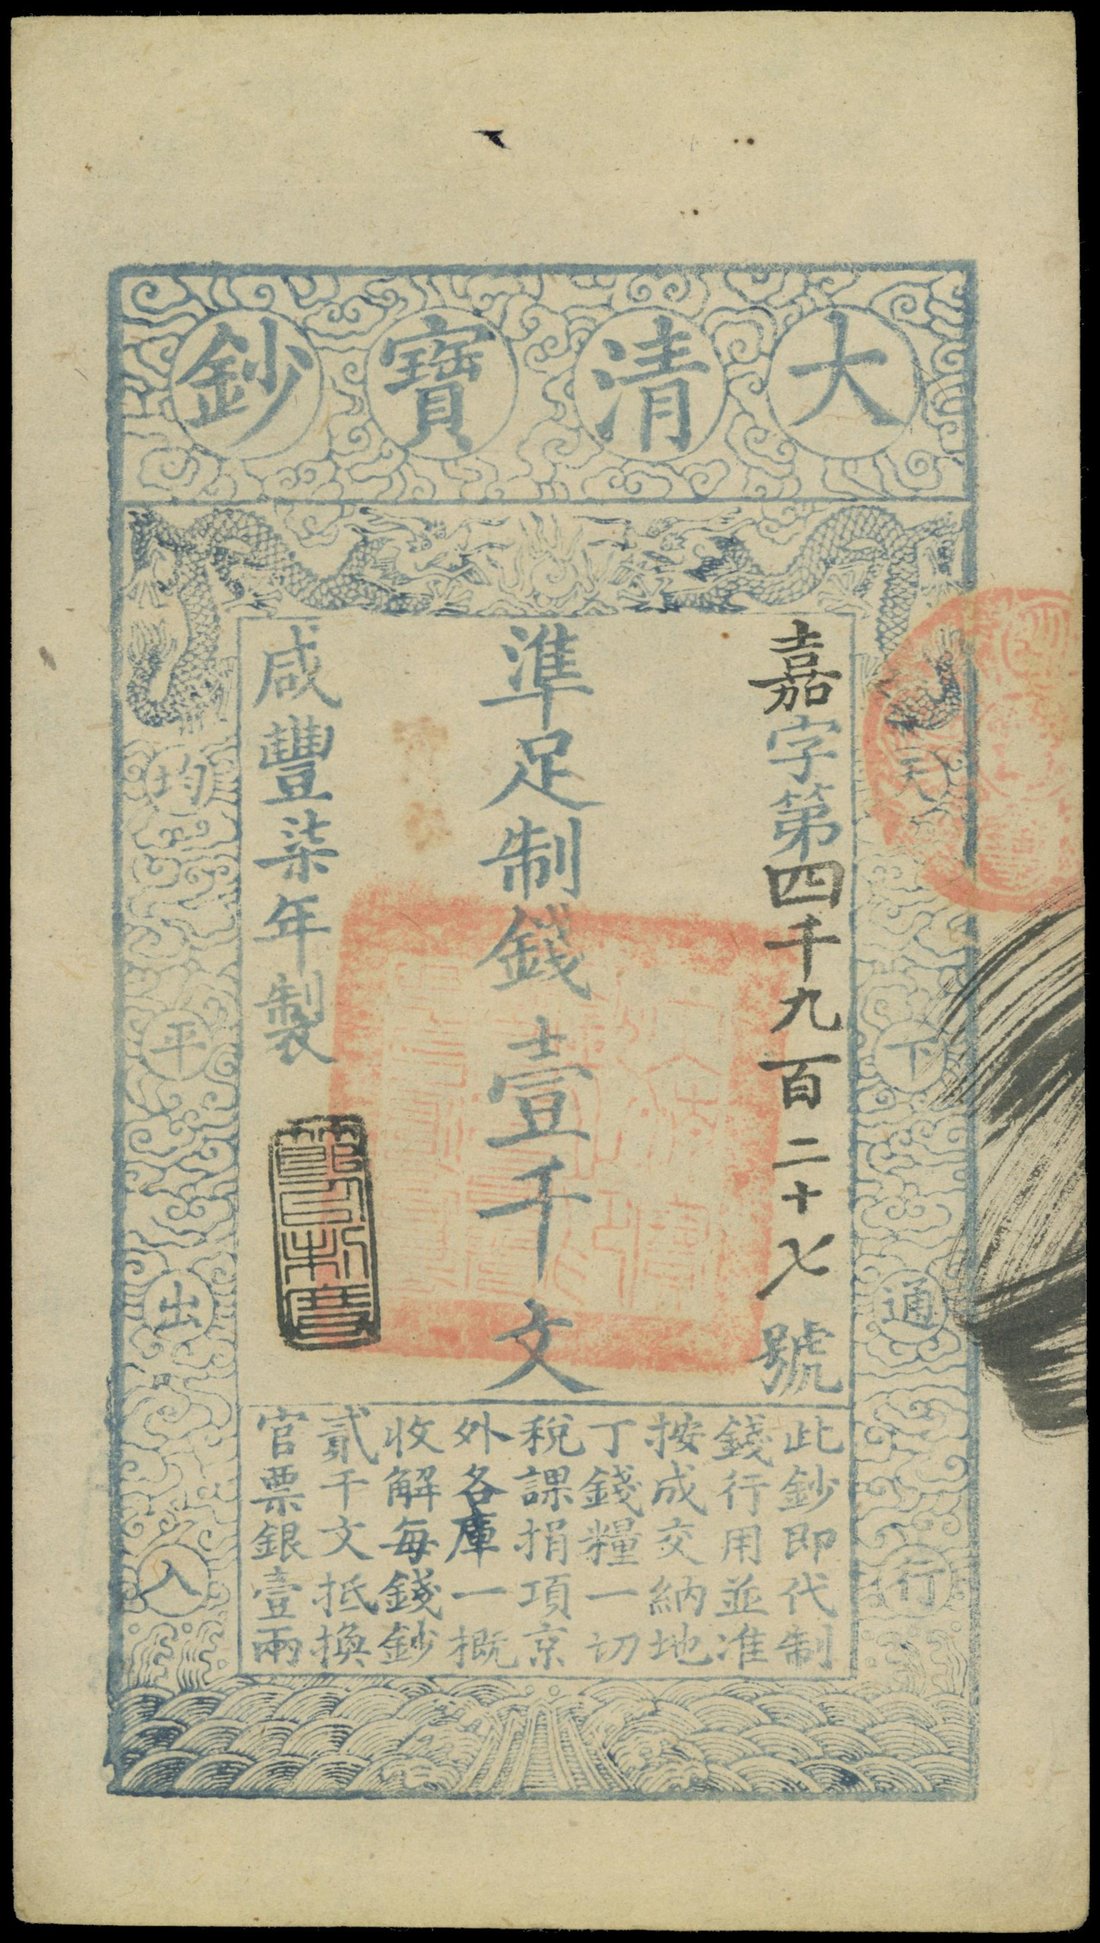 大清寶鈔
天下通行
均平出入
嘉字第四千九百二十七號
準足制錢壹千文
咸豐柒年製
此鈔即代制
錢行用並准
按成交納地
丁錢糧一切
稅課捐項京
外各庫一概
收解每錢鈔
貳千文抵換
官票銀壹兩